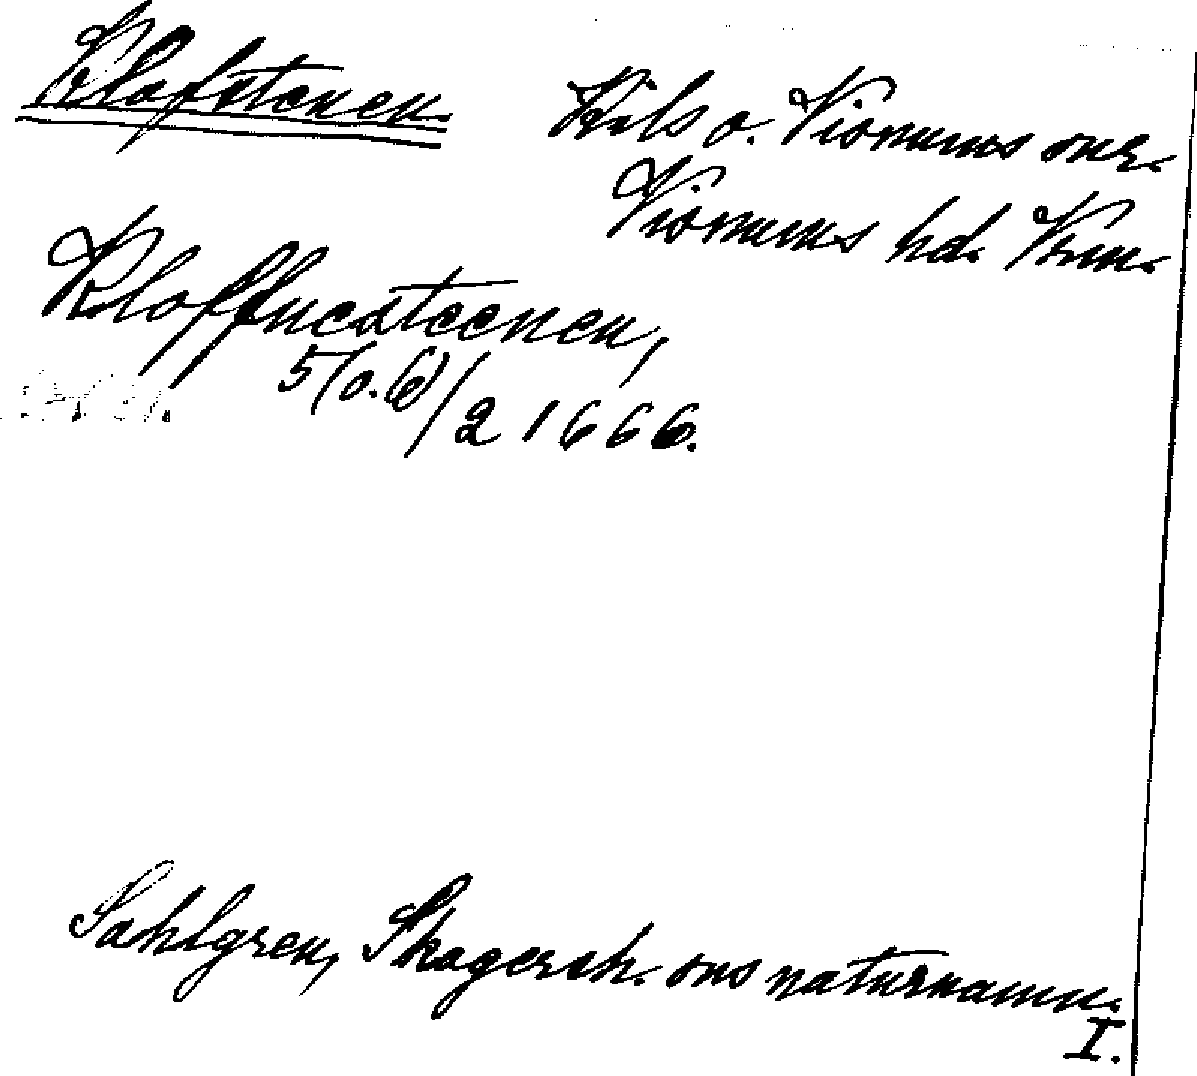 Klofstenen.
Kils o. Visnums snr.
Visnums hd. Vrm.
Kloffuesteenen,
5(o.6)/2 1666.
Sahlgren, Skagersh. sns naturnamn.
I.